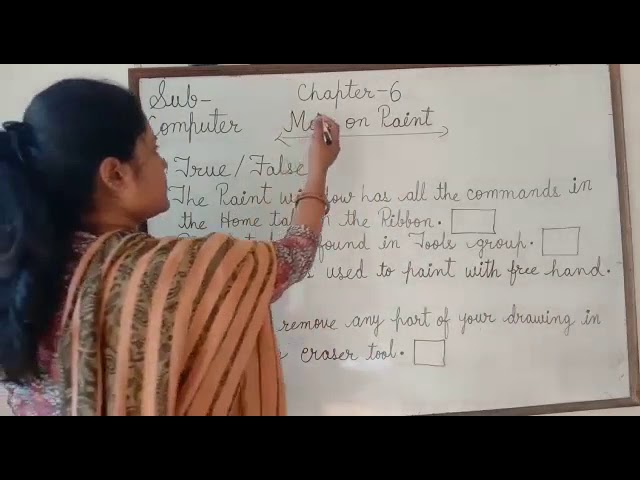 Sub- Chapter-6
Computer on Paint
True/False
The Paint window has all the commands in
the Home in the Ribbon.
found in Tools group.
used to paint with free hand.
remove any part of your drawing in
eraser tool.